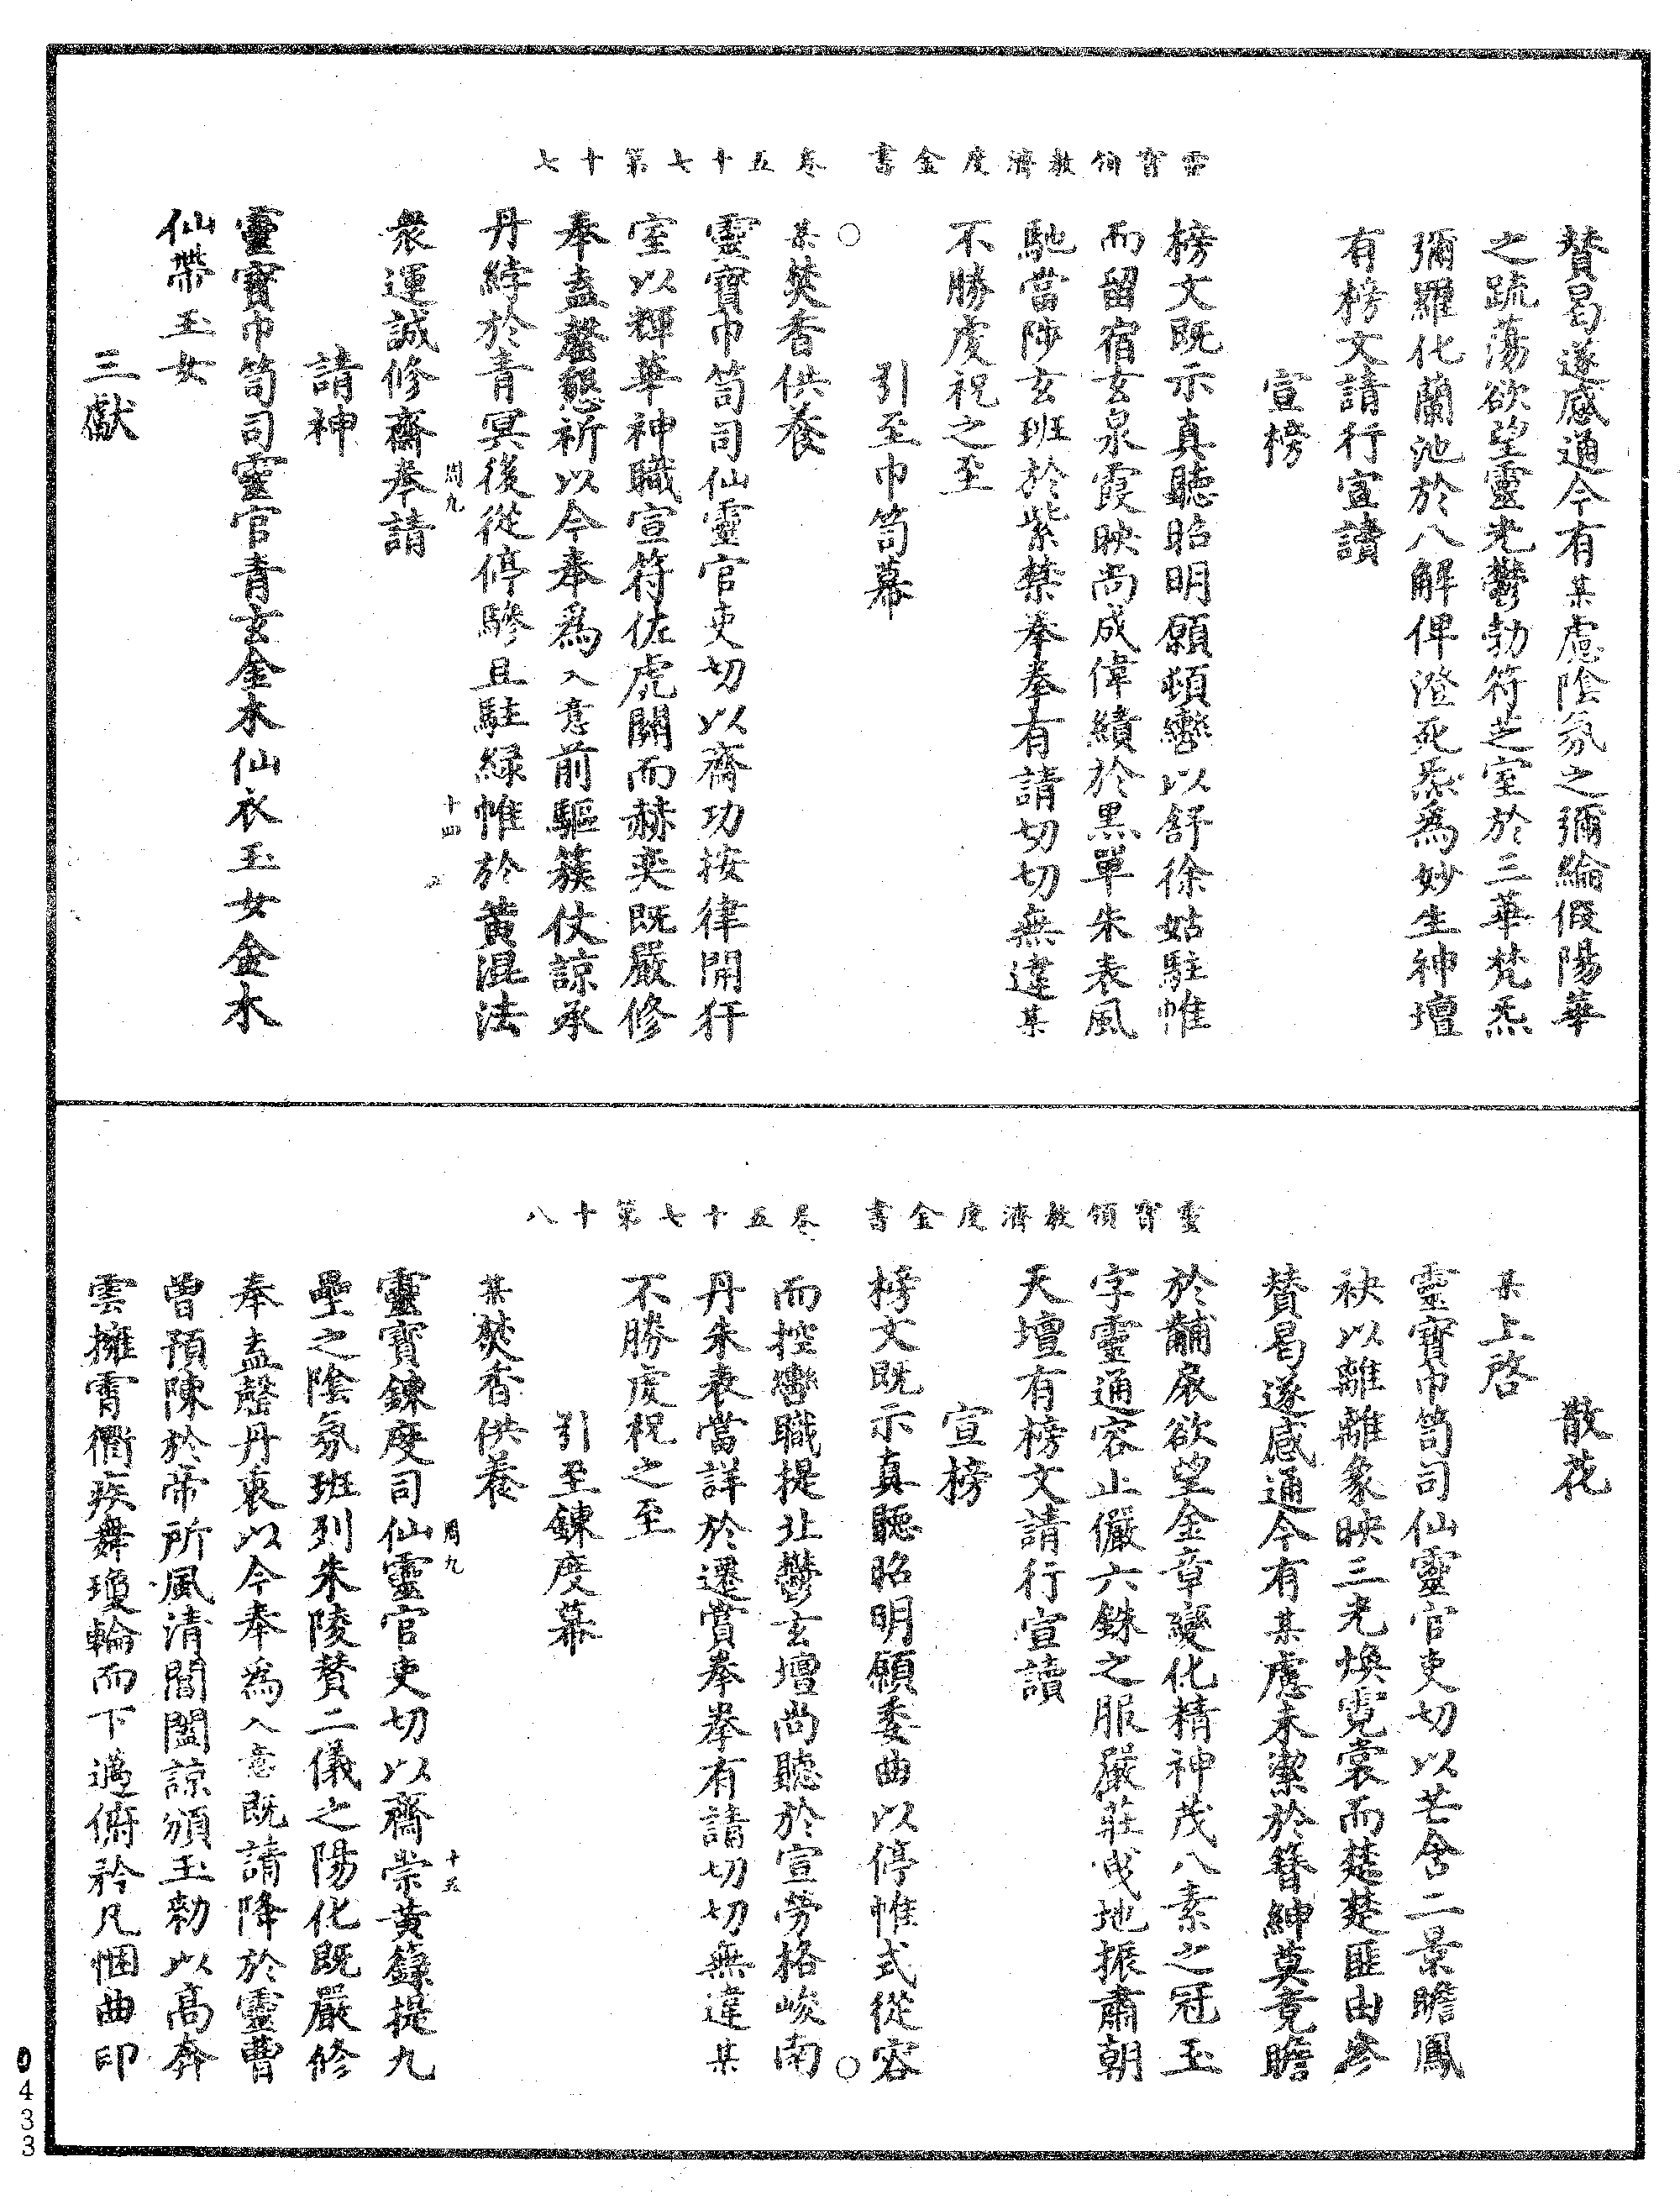 靈寶領教濟度金書　卷五十七第十七
賛曷遂感通今有某慮陰氛之彌綸假陽華
之疏蕩欲望靈光鬱勃符芝室於三華梵炁
彌羅化蘭池於八解俾澄死炁爲妙生神壇
有榜文請行宣讀
宣榜
榜文既示真聽昭明願頓轡以舒徐姑駐帷
而留宿玄泉霞映尚成偉績於黑單朱表風
馳當陟玄班於紫禁拳拳有請切切無違某
不勝虔祝之至
引至巾笥幕
某焚香供養
靈寶巾笥司仙靈官吏切以齋功按律開犴
室以輝華神職宣符佐虎關而赫奕既嚴修
奉盍罄懇祈以今奉爲入意前驅簇仗諒承
丹綍於青冥後從停驂且駐緑帷於黄混法
衆運誠修齋奉請
周九
十四
請神
靈寶巾笥司靈官青玄金木仙衣玉女金木
仙帶玉女
三獻
靈寶領教濟度金書　卷五十七第十八
散花
某上啓
靈寶巾笥司仙靈官吏切以芒含二景瞻鳳
袂以離離象映三光煥霓裳而楚楚匪由參
賛曷遂感通今有某慮未潔於簪紳莫竟瞻
於黼扆欲望金章變化精神茂八素之冠玉
字靈通容止儼六銖之服嚴莊曳地振肅朝
天壇有榜文請行宣讀
宣榜
榜文既示真聽昭明願委曲以停帷式從容
而控轡職提北鬱玄壇尚聽於宣勞格峻南
丹朱表當詳於遷賞拳拳有請切切無違某
不勝虔祝之至
引至鍊度幕
某焚香供養
靈寶鍊度司仙靈官吏切以齋崇黄籙提九
周九
十五
壘之陰氛班列朱陵賛二儀之陽化既嚴修
奉盍罄丹衷以今奉爲入意既請降於靈曹
曾預陳於帝所風清閶闔諒頒玉勑以高奔
雲擁霄衢疾舞瓊輪而下邁俯矜凡悃曲印
0433